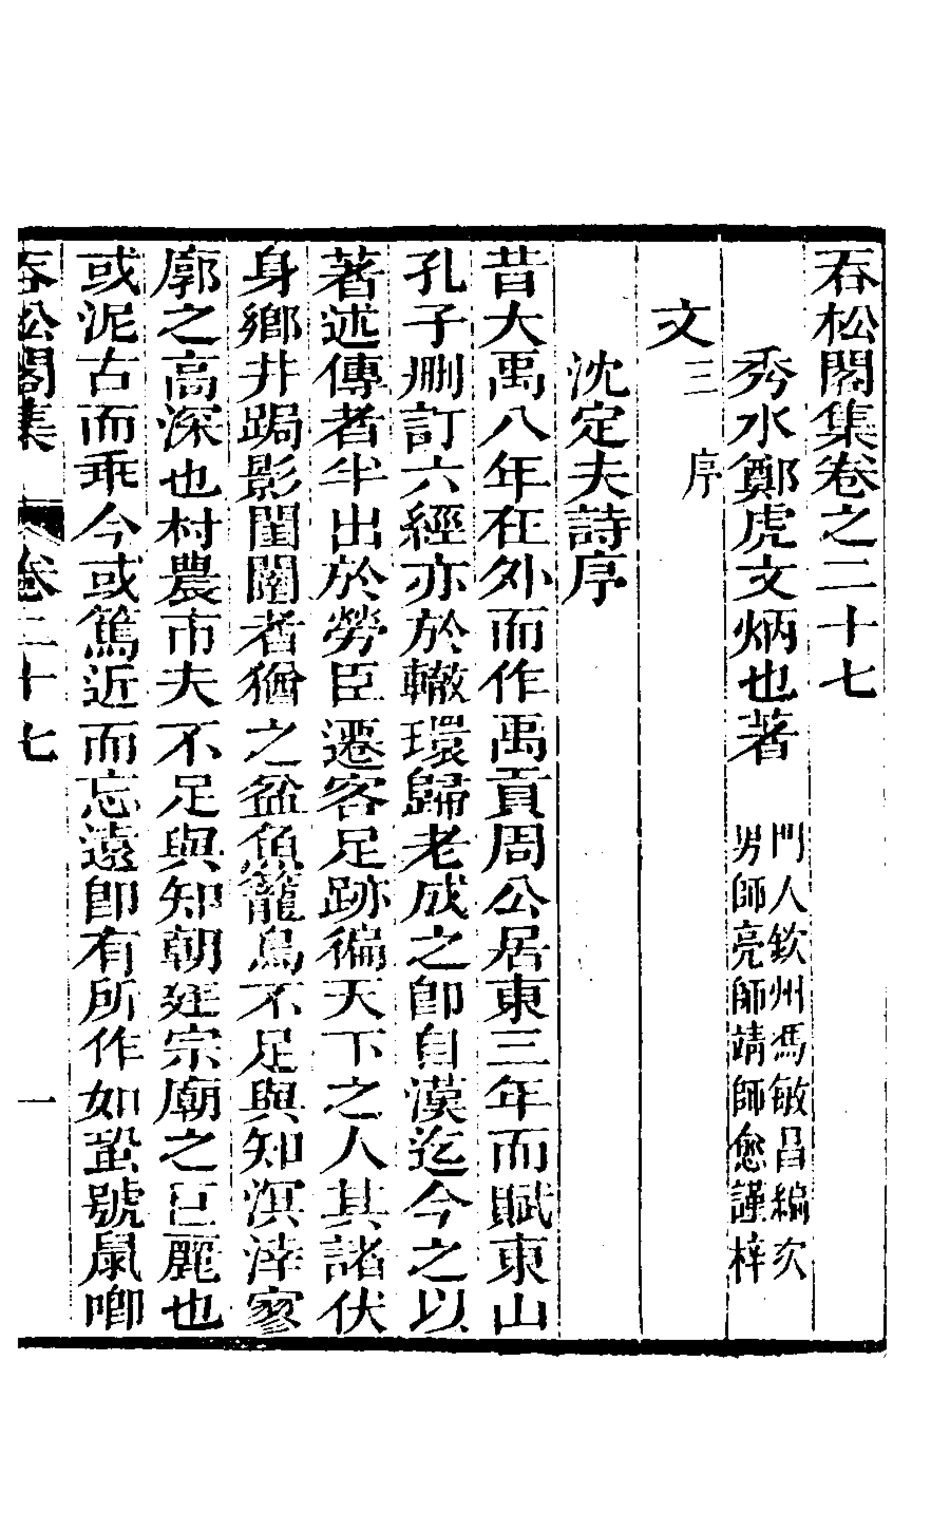 吞松閣集卷之二十七
秀水鄭虎文炳也著
門人欽州馮敏昌編次
男師亮師靖師愈謹梓
文三 序
沈定夫詩序
昔大禹八年在外而作禹貢周公居東三年而賦東山
孔子刪訂六經亦於轍環歸老成之卽自漢迄今之以
著述傳者半出於勞臣遷客足跡徧天下之人其諸伏
身鄉井跼影閨闥者猶之盆魚籠鳥不足與知溟涬寥
廓之高深也村農市夫不足與知朝廷宗廟之巨麗也
或泥古而乖今或篤近而忘遠卽有所作如蛩號鼠喞
吞松閣集 卷二十七 一